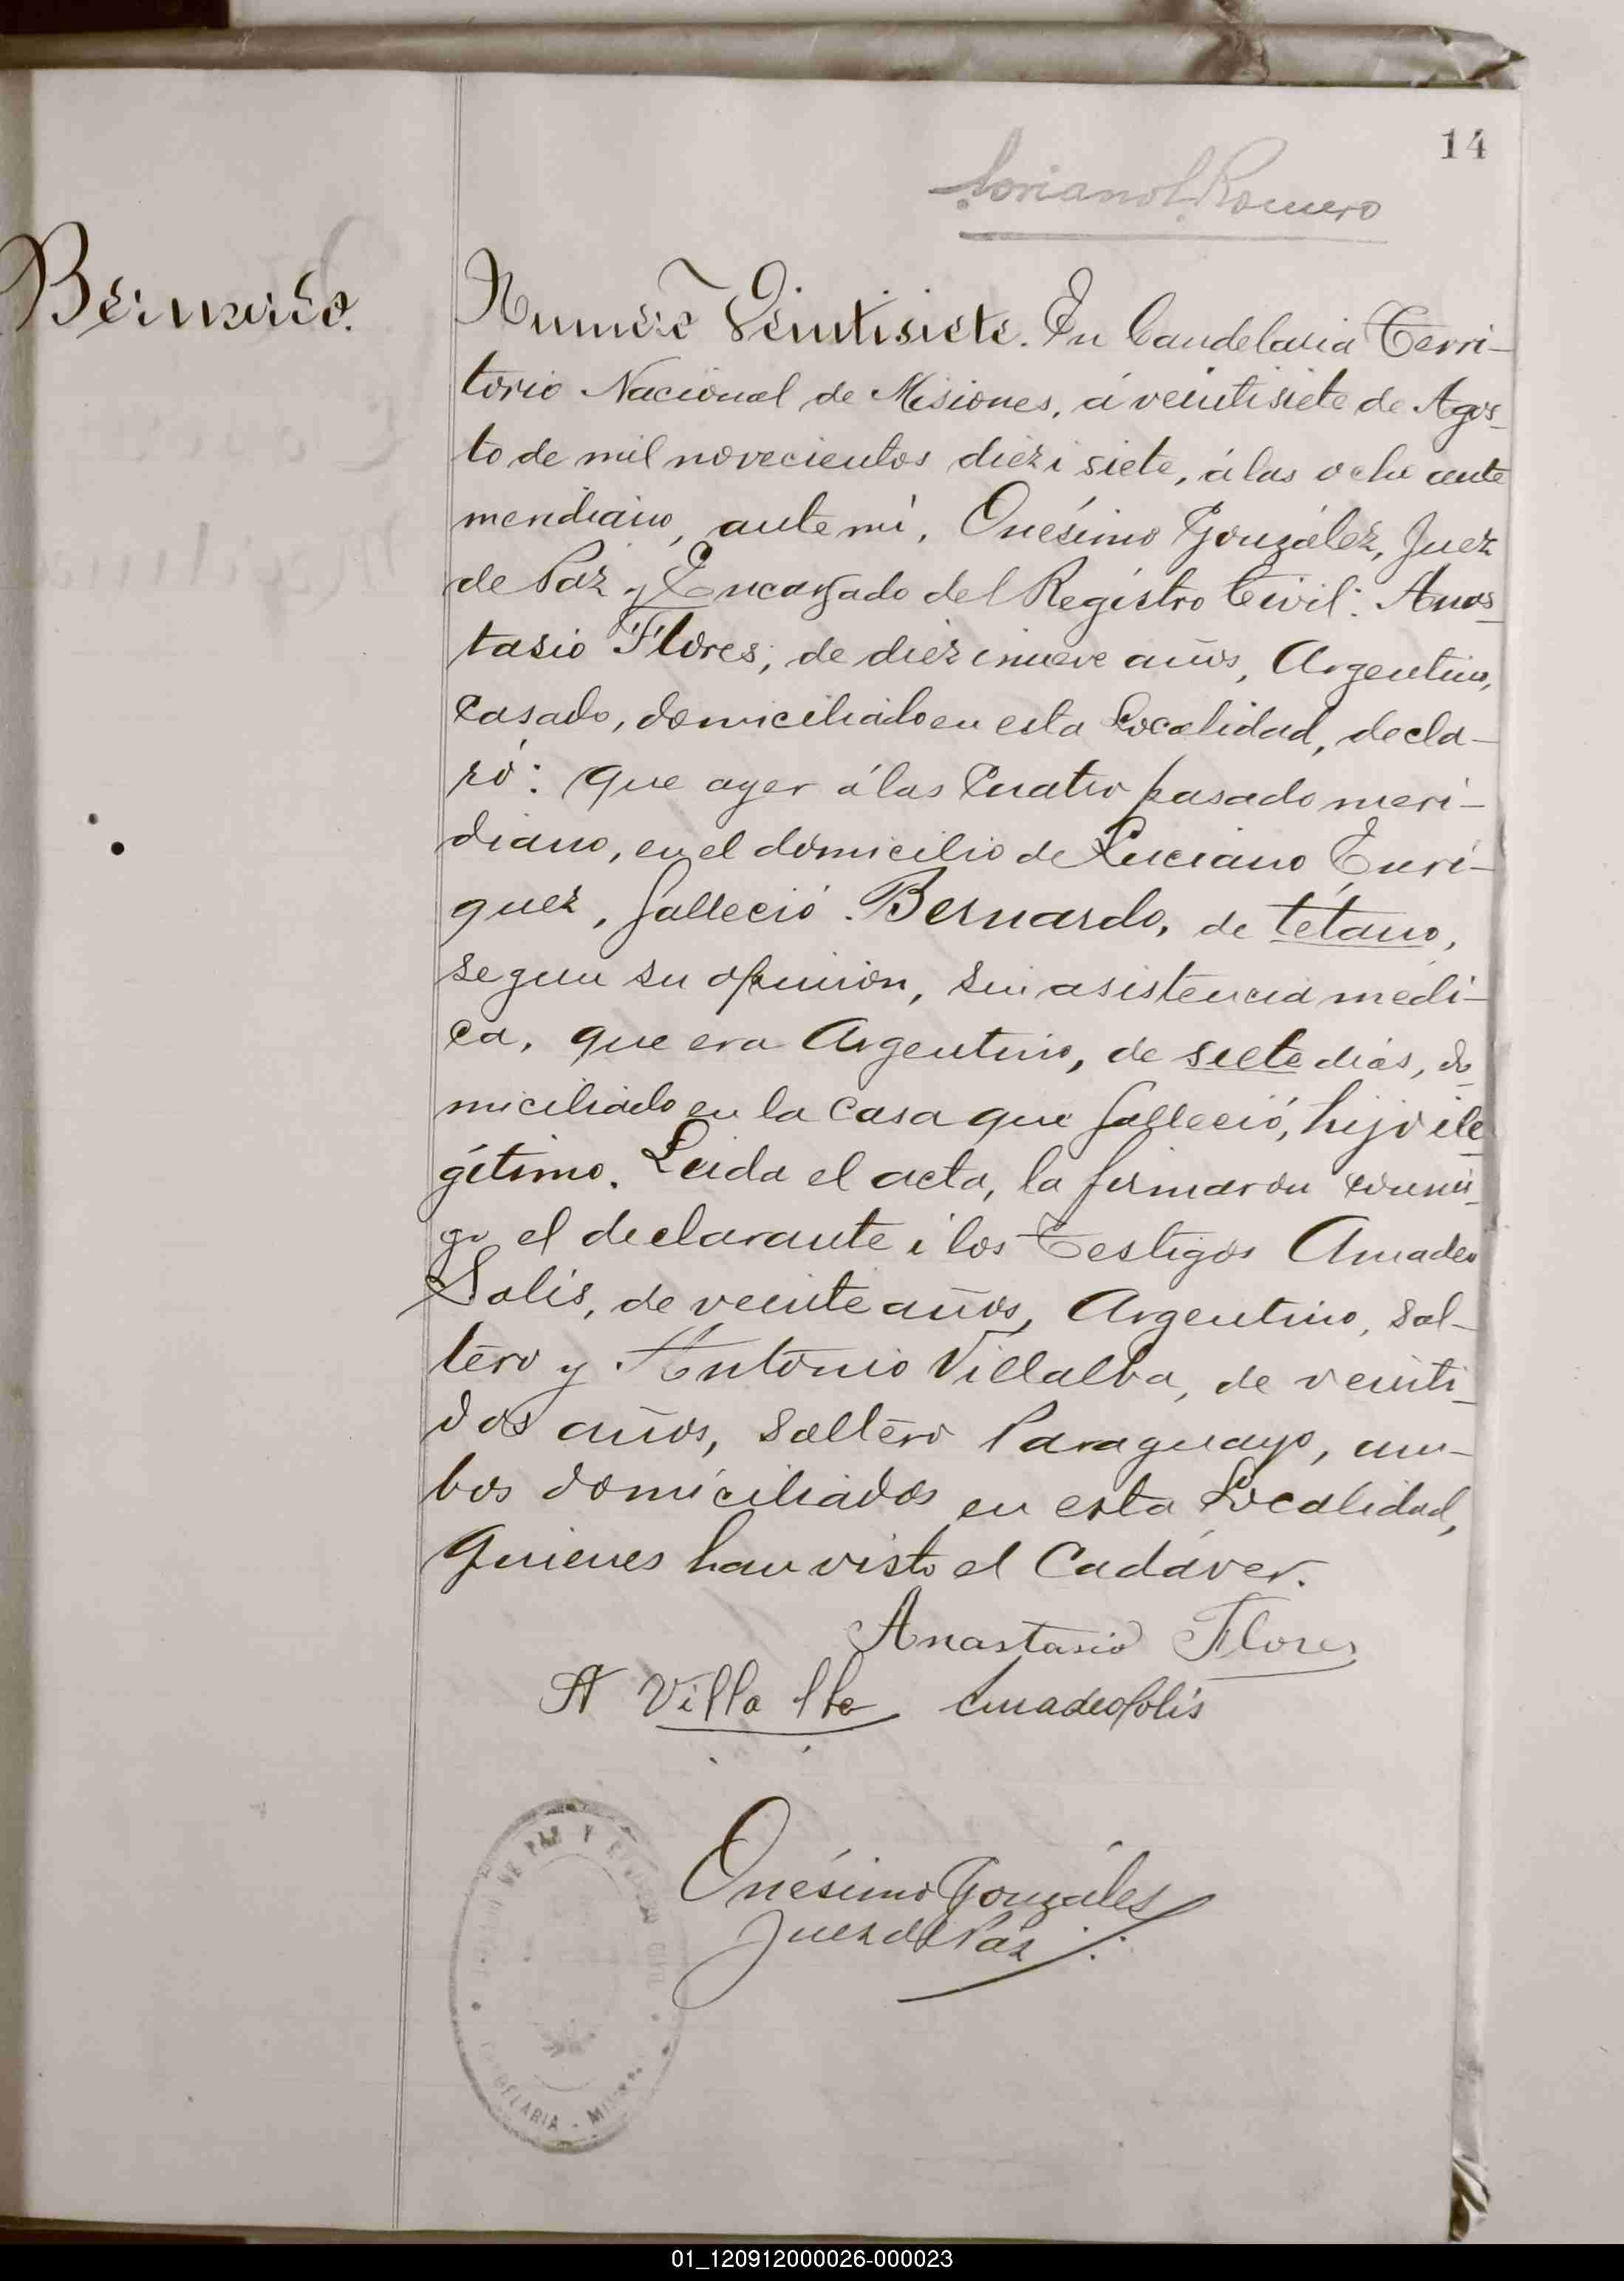 14
Romero
Bernardo.
Numero Veintisiete. En Candelaria Terri-
torio Nacional de Misiones, á veintisiete de Agos-
to de mil novecientos diez i siete, á las ocho ante
meridiano, ante mi, Onésimo González, Juez
de Paz y Encargado del Registro Civil: Anas-
tasio Flores, de diez inueve años, Argentino,
casado, domiciliado en esta Localidad, decla-
ró: que ayer á las Cuatro pasado meri-
diano, en el domicilio de Luciano Enri-
quez, falleció Bernardo, de tétano,
segun su opinión, sin asistencia medi-
ca, que era Argentino, de siete dias, do-
miciliado en la casa que falleció, hijo ile-
gítimo. Leida el acta, la firmaron conmi-
go el declarante i los Testigos Amadeo
Solis, de veinte años, Argentino, sol-
tero y Antonio Villalba, de veinti-
dos años, soltero Paraguayo, am-
bos domiciliados en esta Localidad,
quienes han visto el Cadáver.
Anastasio Flores
A Villa lba Amadeo Solis
Onésimo Gonzáles
Juez de Paz
DE PAZ Y CIVIL
CANDELARIA - MISIONES
01_120912000026-000023